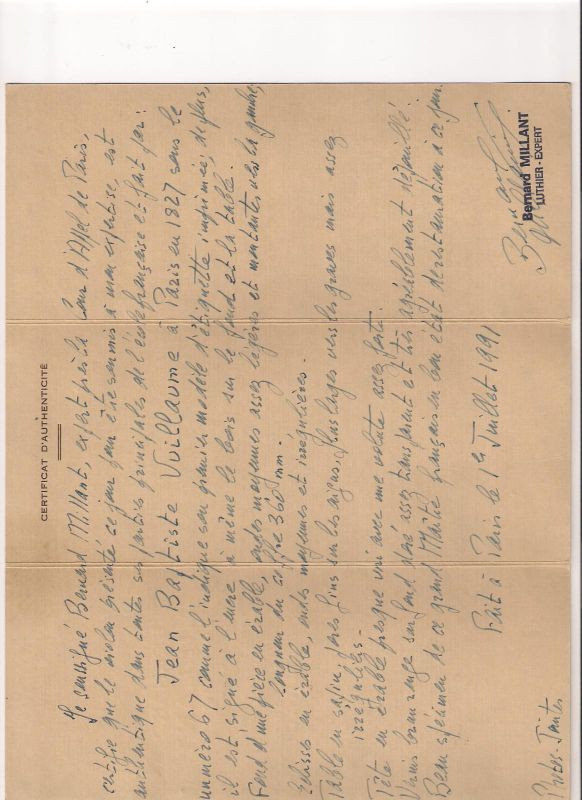 CERTIFICAT D'AUTHENTICITÉ
Je soussigné Bernard Millant, expert près la Cour d'Appel de Paris,
certifie que le violon présenté ce jour pour être soumis à mon expertise, est
authentique dans toutes ses parties principales de l'école française et fait par:
Jean Baptiste Vuillaume à Paris en 1827 sous le
numéro 67 comme l'indique son premier modèle d'étiquette imprimée; de plus,
il est signé à l'encre à même le bois sur le fond et la table.
Fond d'une pièce en érable, ondes moyennes assez légères et montantes vers la gauche,
longueur du coffre 360 mm.
Eclisses en érable, ondes moyennes et irrégulières.
Table en sapin, pores fins sur les aigus, plus larges vers les graves mais assez
irréguliers.
Tête en érable presque uni avec une volute assez forte.
Vernis brun rouge sur fond doré assez transparent et très agréablement dépouillé.
Beau spécimen de ce grand Maître français en bon état de restauration à ce jour.
Fait à Paris le 1er Juillet 1991
Bernard MILLANT
LUTHIER - EXPERT
Photos Jointes